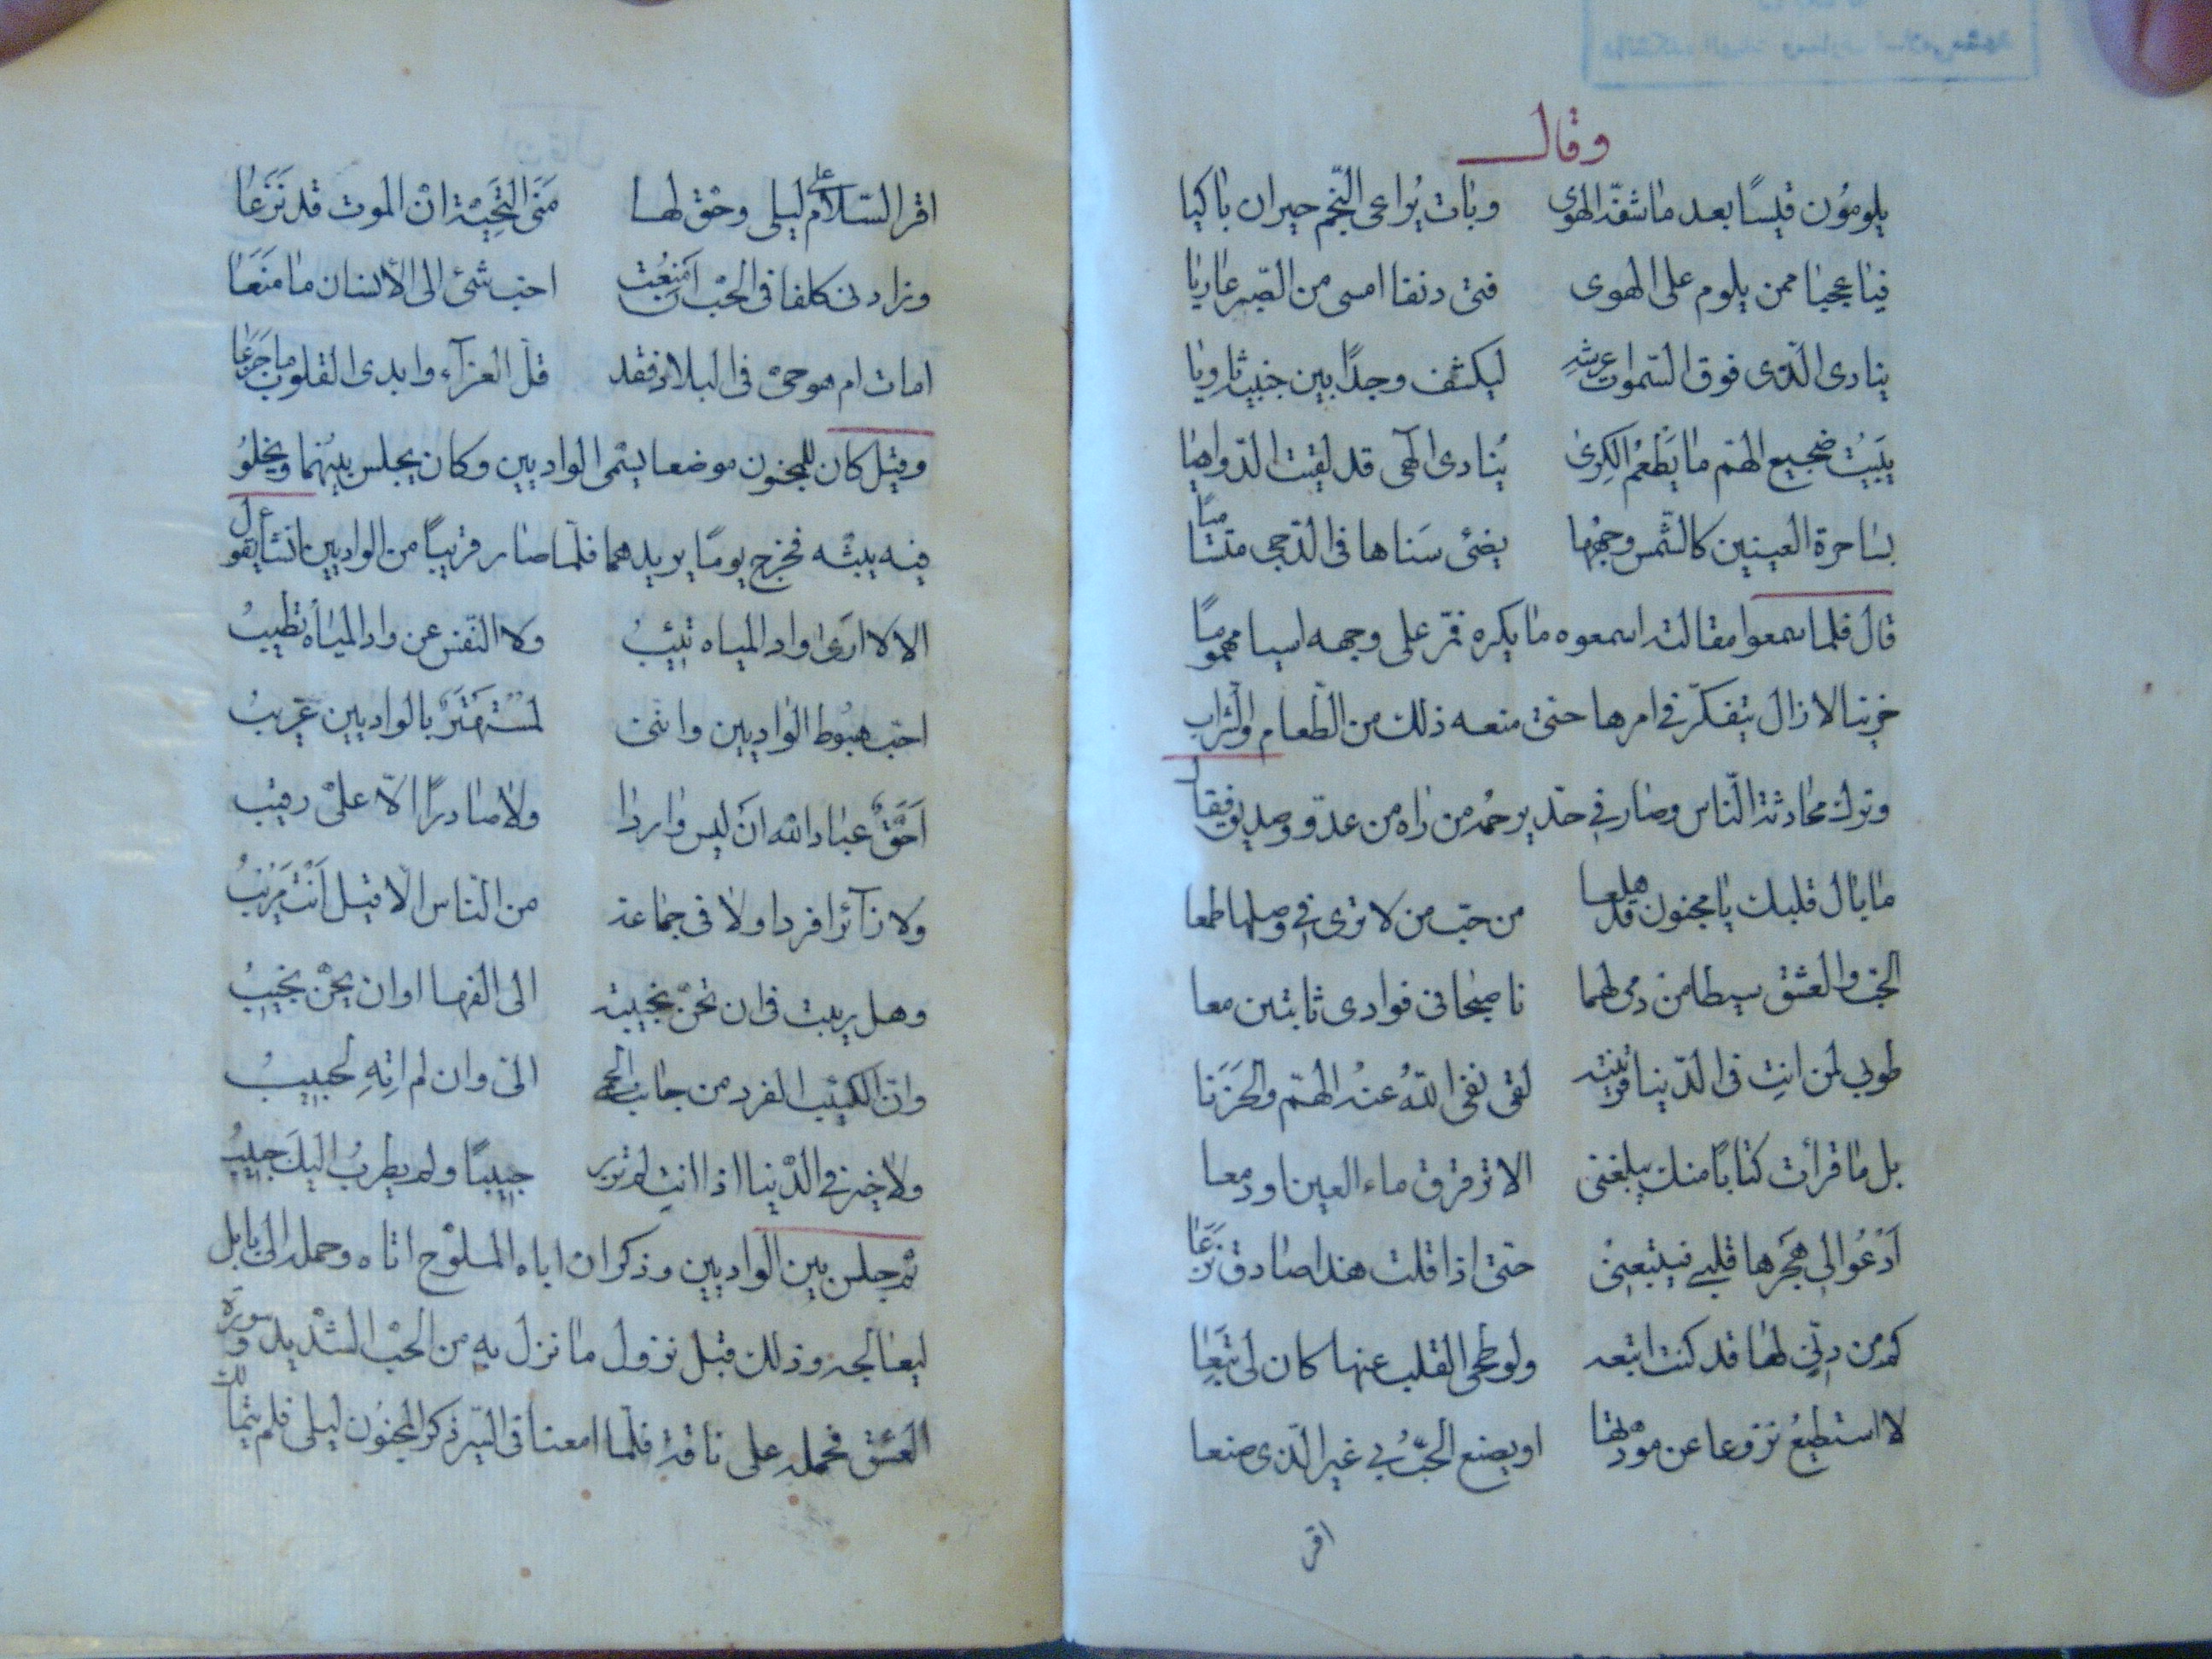 وقال
يلومُون قيسًا بعد ما شفّه الهوى وبات يُراعى النّجم حيران باكيا
فيا عجبا ممن يلوم على الهوى فتى دنفا امسى من الصّبر عاريا
ينادى الّذى فوق السّموات عرشه ليكشف وجدًا بين جنبيه ثاويا
يبَيتُ ضجيع الهمّ ما يَطْعَمُ الكِرىٰ يُنادى الٓهى قد لقيت الدّواهيا
بساحرة العينين كالشّمس وجهها يضئ سَناها فى الدّجى متساميا
قال فلما سمعوا مقالته اسمعوه ما يكره فمرّ على وجهه اسيا مهمومًا
حزينا لا زال يتفكّر فى امرها حتى منعه ذلك من الطّعام والشراب
وترك محادثة النّاس وصار فى حدّ يرحمُه من راه من عدوّ وصديق فقال
ما بال قلبك يا مجنون قد هلعا من حبّ من لا ترى فى وصلها طمعا
الحبّ والعشق سيطا من دمى لهما فاصبحا فى فوادى ثابتين معا
طوبى لمن انتِ فى الدّنيا قرينته لقى نفى اللّهُ عنهُ الهمّ والحَزَنا
بل ما قرأت كتابًا منك يبلغنى الا ترقرق ماء العين او دمعا
اَدْعُوا الى هَجَرها قلبى فيتبعنى حتى اذا قلت هذا صادق نَزَعَا
كم من دنّىٍ لها قد كنت اتبعه ولو صحى القلب عنها كان لى تَبَعَا
لا استطيعُ نزوعا عن مودّتها او يصنع الحبّ بى غير الّذى صنعا
اقر
اقر السّلام على ليلى وحق لها منّى التّحيّة انّ الموت قد نَزَعَا
وزادنى كلفا فى الحبّ ان مُنِعَت احبّ شئ الى الأنسان ما مَنَعَا
امات ام هو حىّ فى البلاد فقد قلّ العزآء وابدى القلوب ما جَزِعَا
وقيل كان للمجنون موضعا يسمّى الواديين وكان يجلس بينهما ويخلوُ
فيه ببثّه فخرج يومًا يريدهما فلمّا صار قريبًا من الواديين انشأ يقول
الا لا ارَىٰ واد المياه يثيبُ ولا النّفس عن واد المياه تطيبُ
احبّ هبُوط الوٰاديين واننى لمُسْتَهتَرٌ بالواديين غريبُ
اَحَقٌّ عباد الله انْ ليس واردا ولا صادرًا الّا علىّ رقيب
ولا زآئرا فردا ولا فى جماعة من النّاس الّا قيل اَنْتَ مُرَيبُ
وهل ريبت فى ان تحنّ نجيبة الى الفها او ان يحنّ نجيبُ
وانّ الكثيب الفرد من جانب الحمى الىّ وان لم اتِهِ لحبيبُ
ولا خير فى الدّنيا اذا انت لم تزر حبيبًا ولم يطربُ اليك حبيبُ
ثم جلس بين الواديين وذكر ان اباه الملوّح اتاه وحمله الى بابل
ليعالجه وذلك قبل نزول ما نزل به من الحبّ الشّديد وسورة
العشق فحمله على ناقة فلمّا امعنا فى السّير ذكر المجنُون ليلى فلم يتمالك